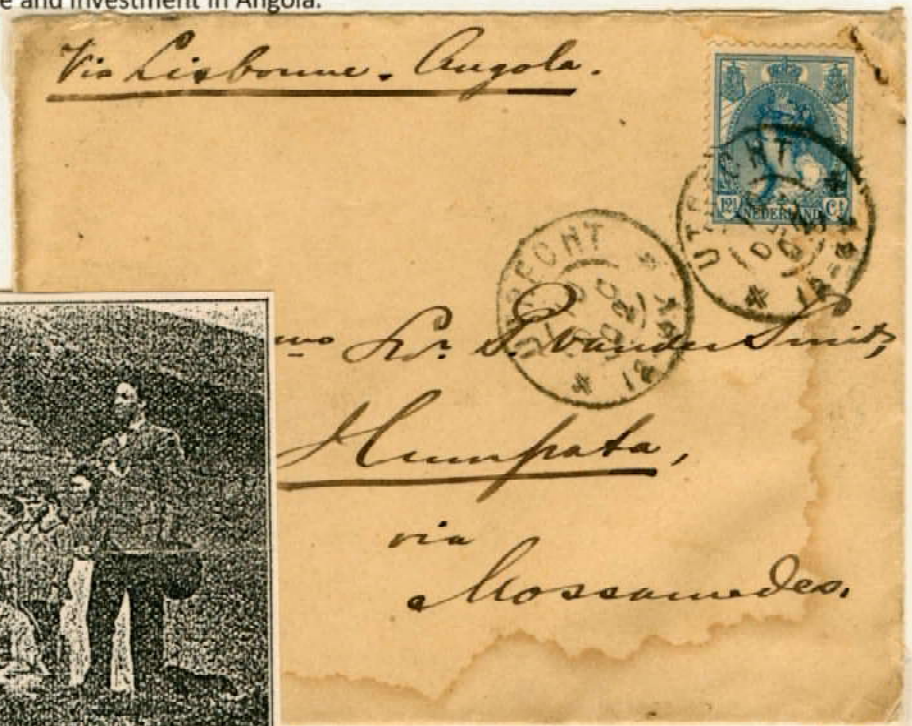 e and investment in Angola.
Via Lisbonne - Angola.
12½ Ct
NEDERLAND
UTRECHT
UTRECHT
12-4
P. van der Smit,
Humpata,
via
Mossamedes.